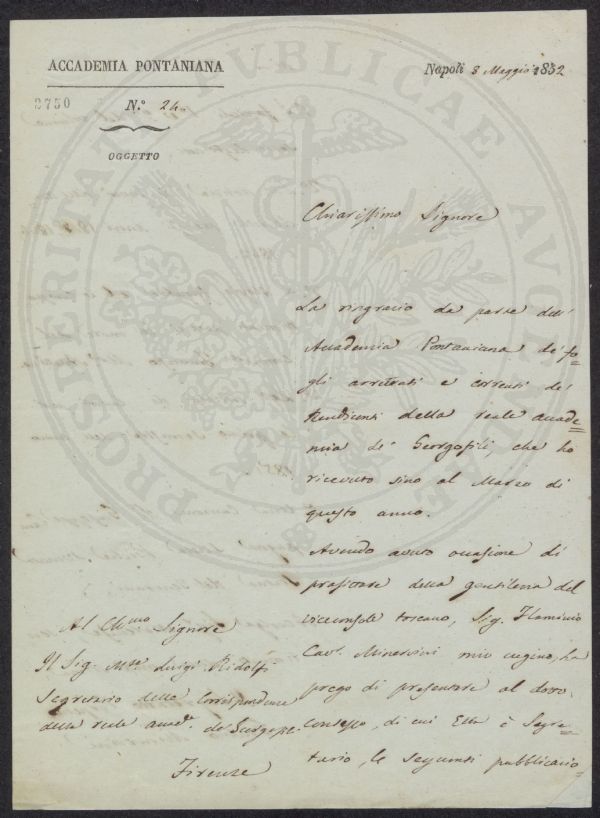 ACCADEMIA PONTANIANA
Napoli 8 Maggio 1852
2750
N.° 24
OGGETTO
Chiarissimo Signore
La ringrazio da parte dell'
Accademia Pontaniana de' fo=
gli arretrati e correnti dei
Rendiconti della reale accade=
mia de' Georgofili, che ho
ricevuto sino al Marzo di
questo anno.
Avendo avuto occasione di
profittare della gentilezza del
viceconsole toscano, Sig. Flaminio
Cav. Minervini mio cugino, la
prego di presentare al dotto
Consesso, di cui Ella è Segre=
tario, le seguenti pubblicazio=
Al Ch.mo Signore
Il Sig. M.se Luigi Ridolfi
Segretario della Corrispondenza
della reale accad.a de' Georgof.
Firenze
PROSPERITATI PVBLICAE AVGENDAE